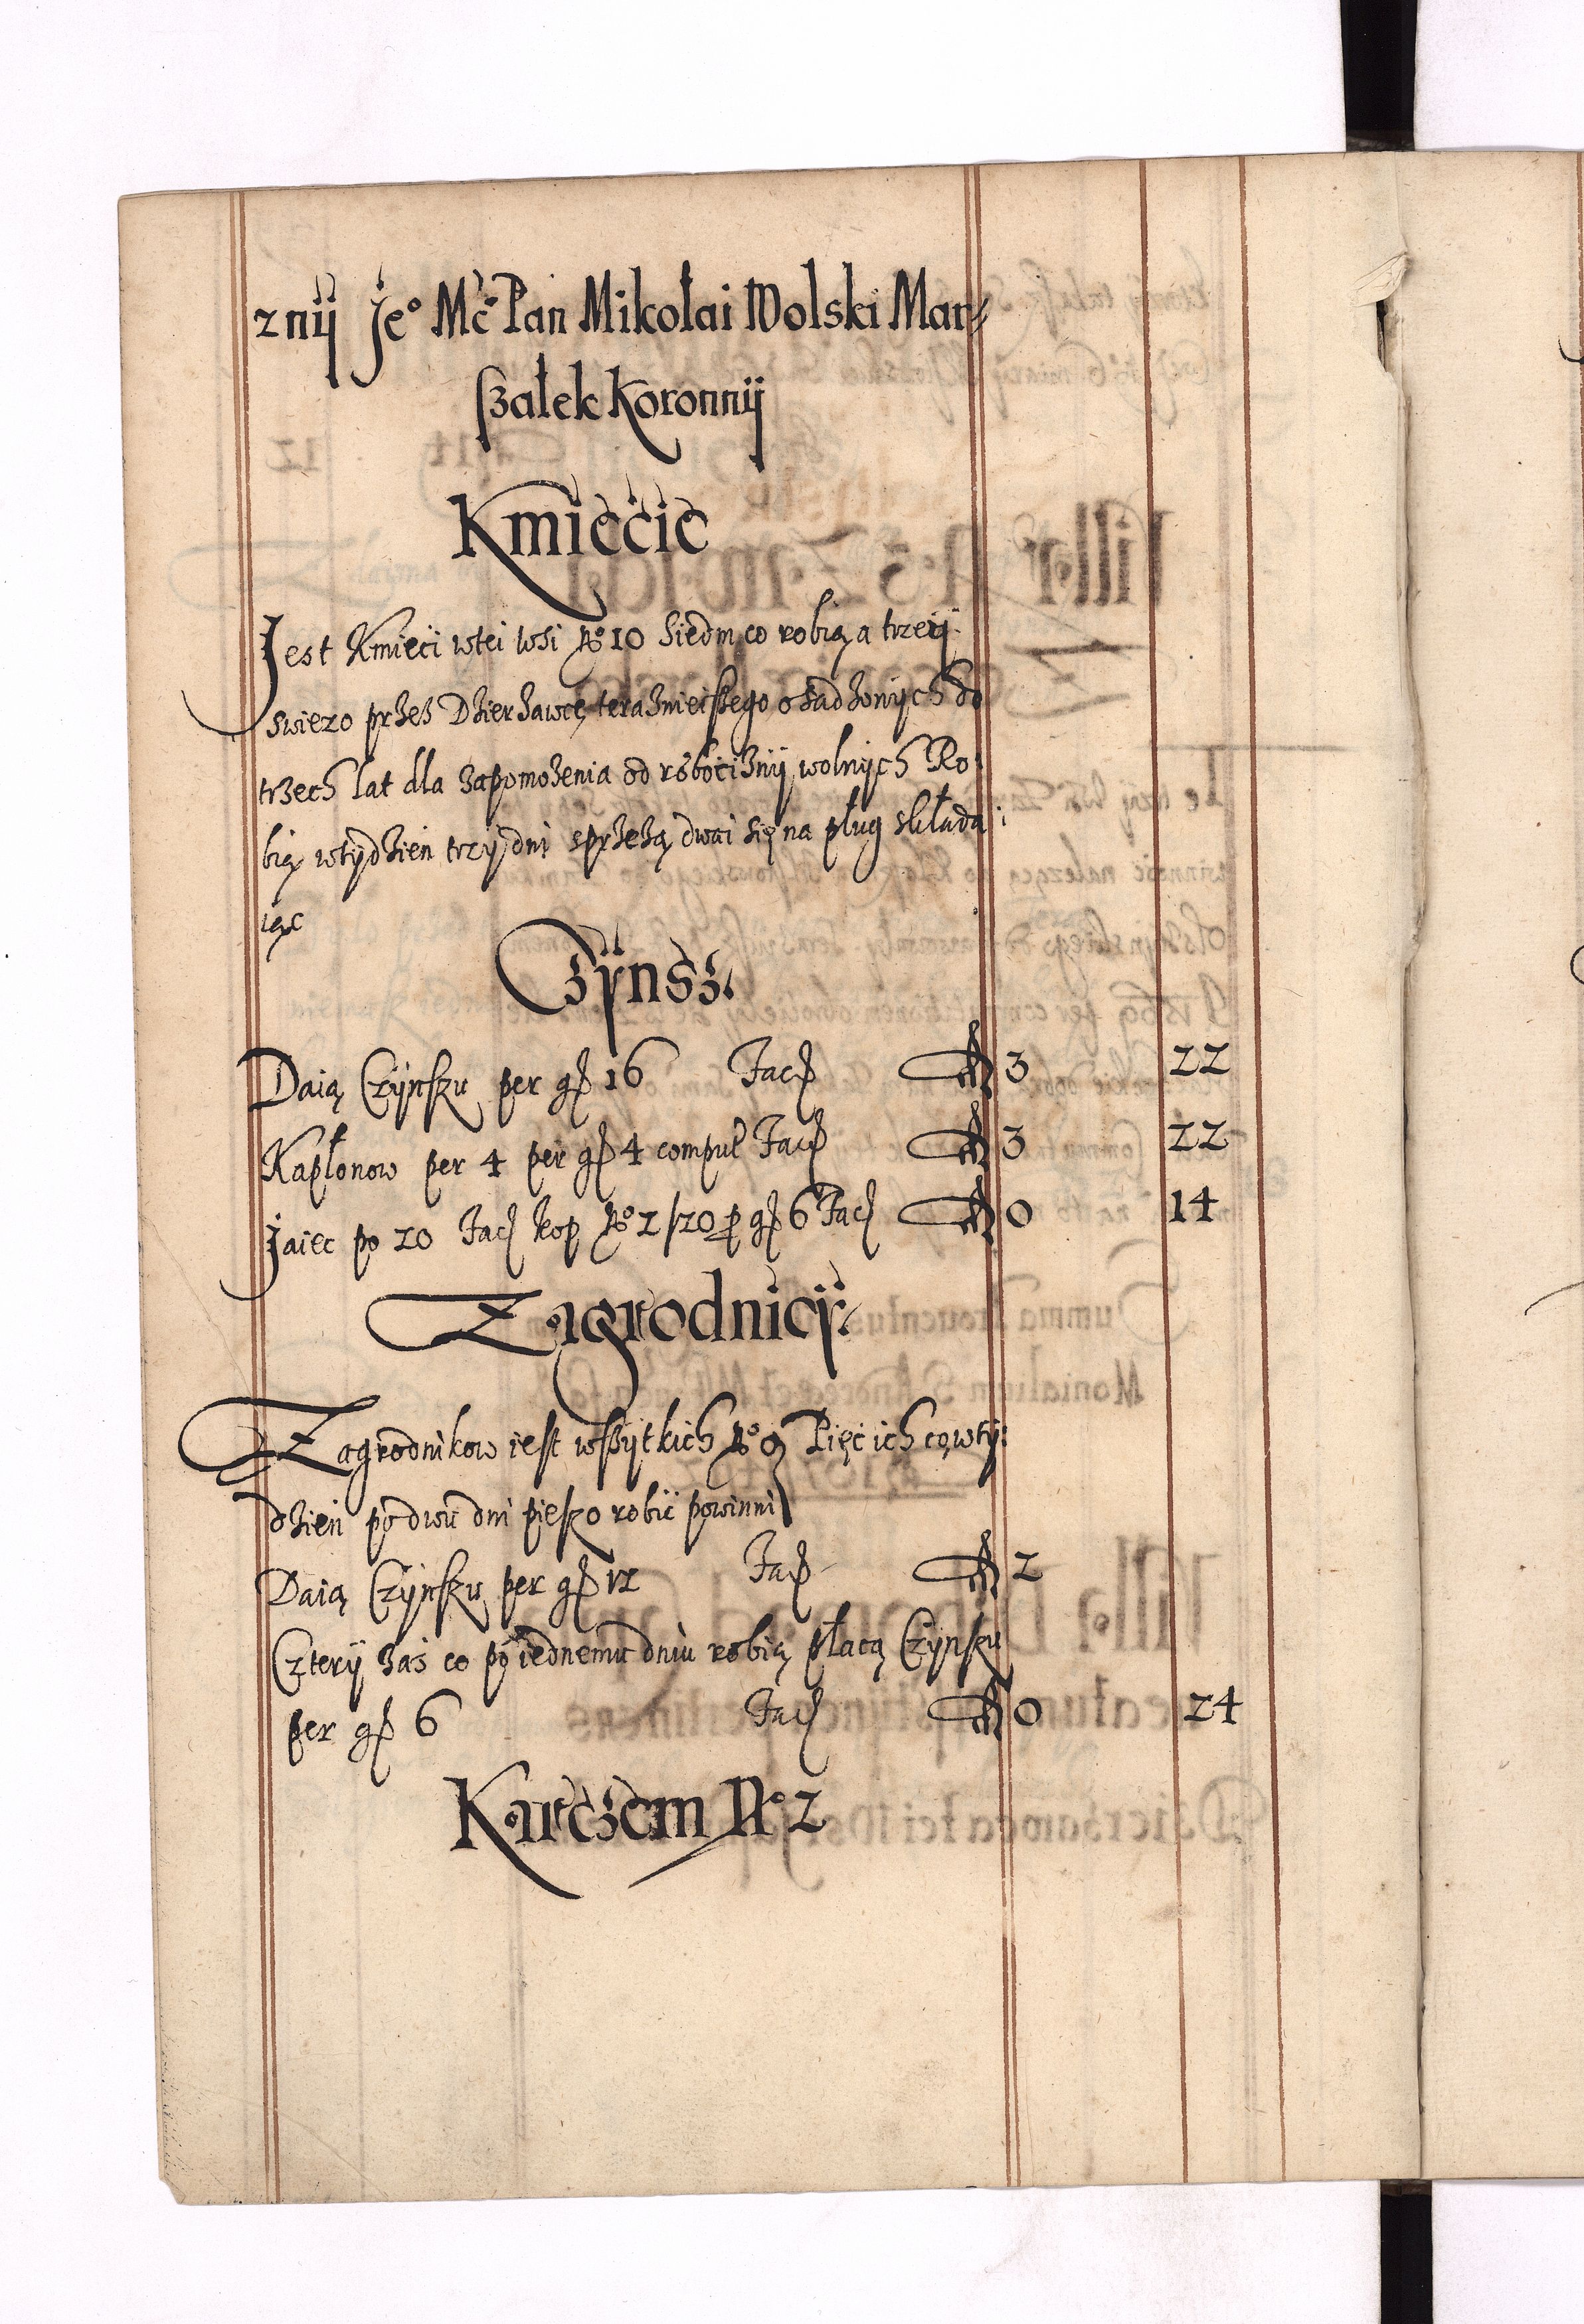 znij Jeº Mć Pan Mikołai Wolski Mar-
szałek Koronnij
Kmiecie
Jest Kmieci wtei wsi Nº 10 siedm co robią a trzeij
swiezo przez Dzierzawcę teraznieiszego osadzonijch do
trzech lat dla zapomozenia od robociznij wolnijch Ro:
bią wtijdzien trzij dni sprzezą dwai się na pług składa:
iąc
Czijnsz.
Daią Czijnszu per gß 16 facß 3 22
Kapłonow per 4 per gß 4 comput facß 3 22
Jaiec po 20 fac kop Nº 2/20 p gß 6 fac 0 14
Zagrodnicij.
Zagrodnikow iest wszijtkich Nº 9 Pięć ich co wtij:
dzien po dwu dni pieszo robić powinni
Daią Czijnszu per gß 12 facß 2
Czterij zas co po iednemu dniu robią płacą Czijnszu
per gß 6 fac 0 24
Karczem Nº 2